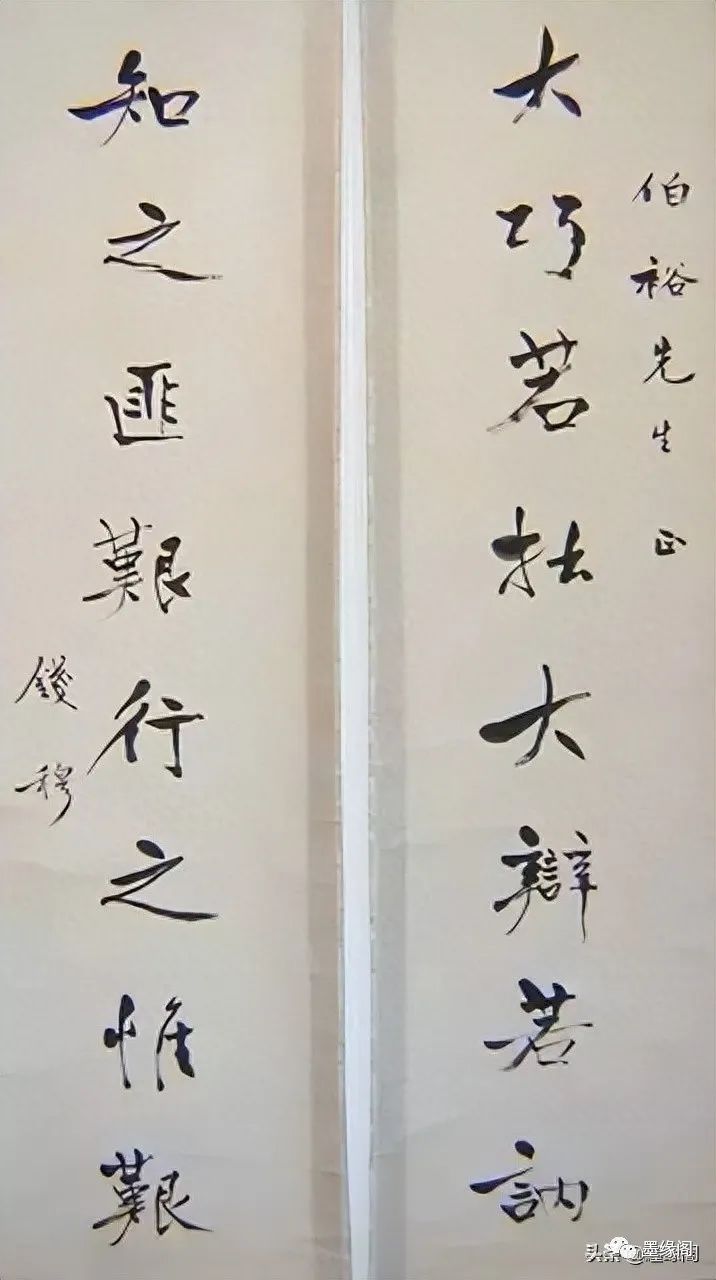 伯裕先生正
大巧若拙大辯若訥
知之匪艱行之惟艱
錢穆
头条 @墨缘阁
墨缘阁